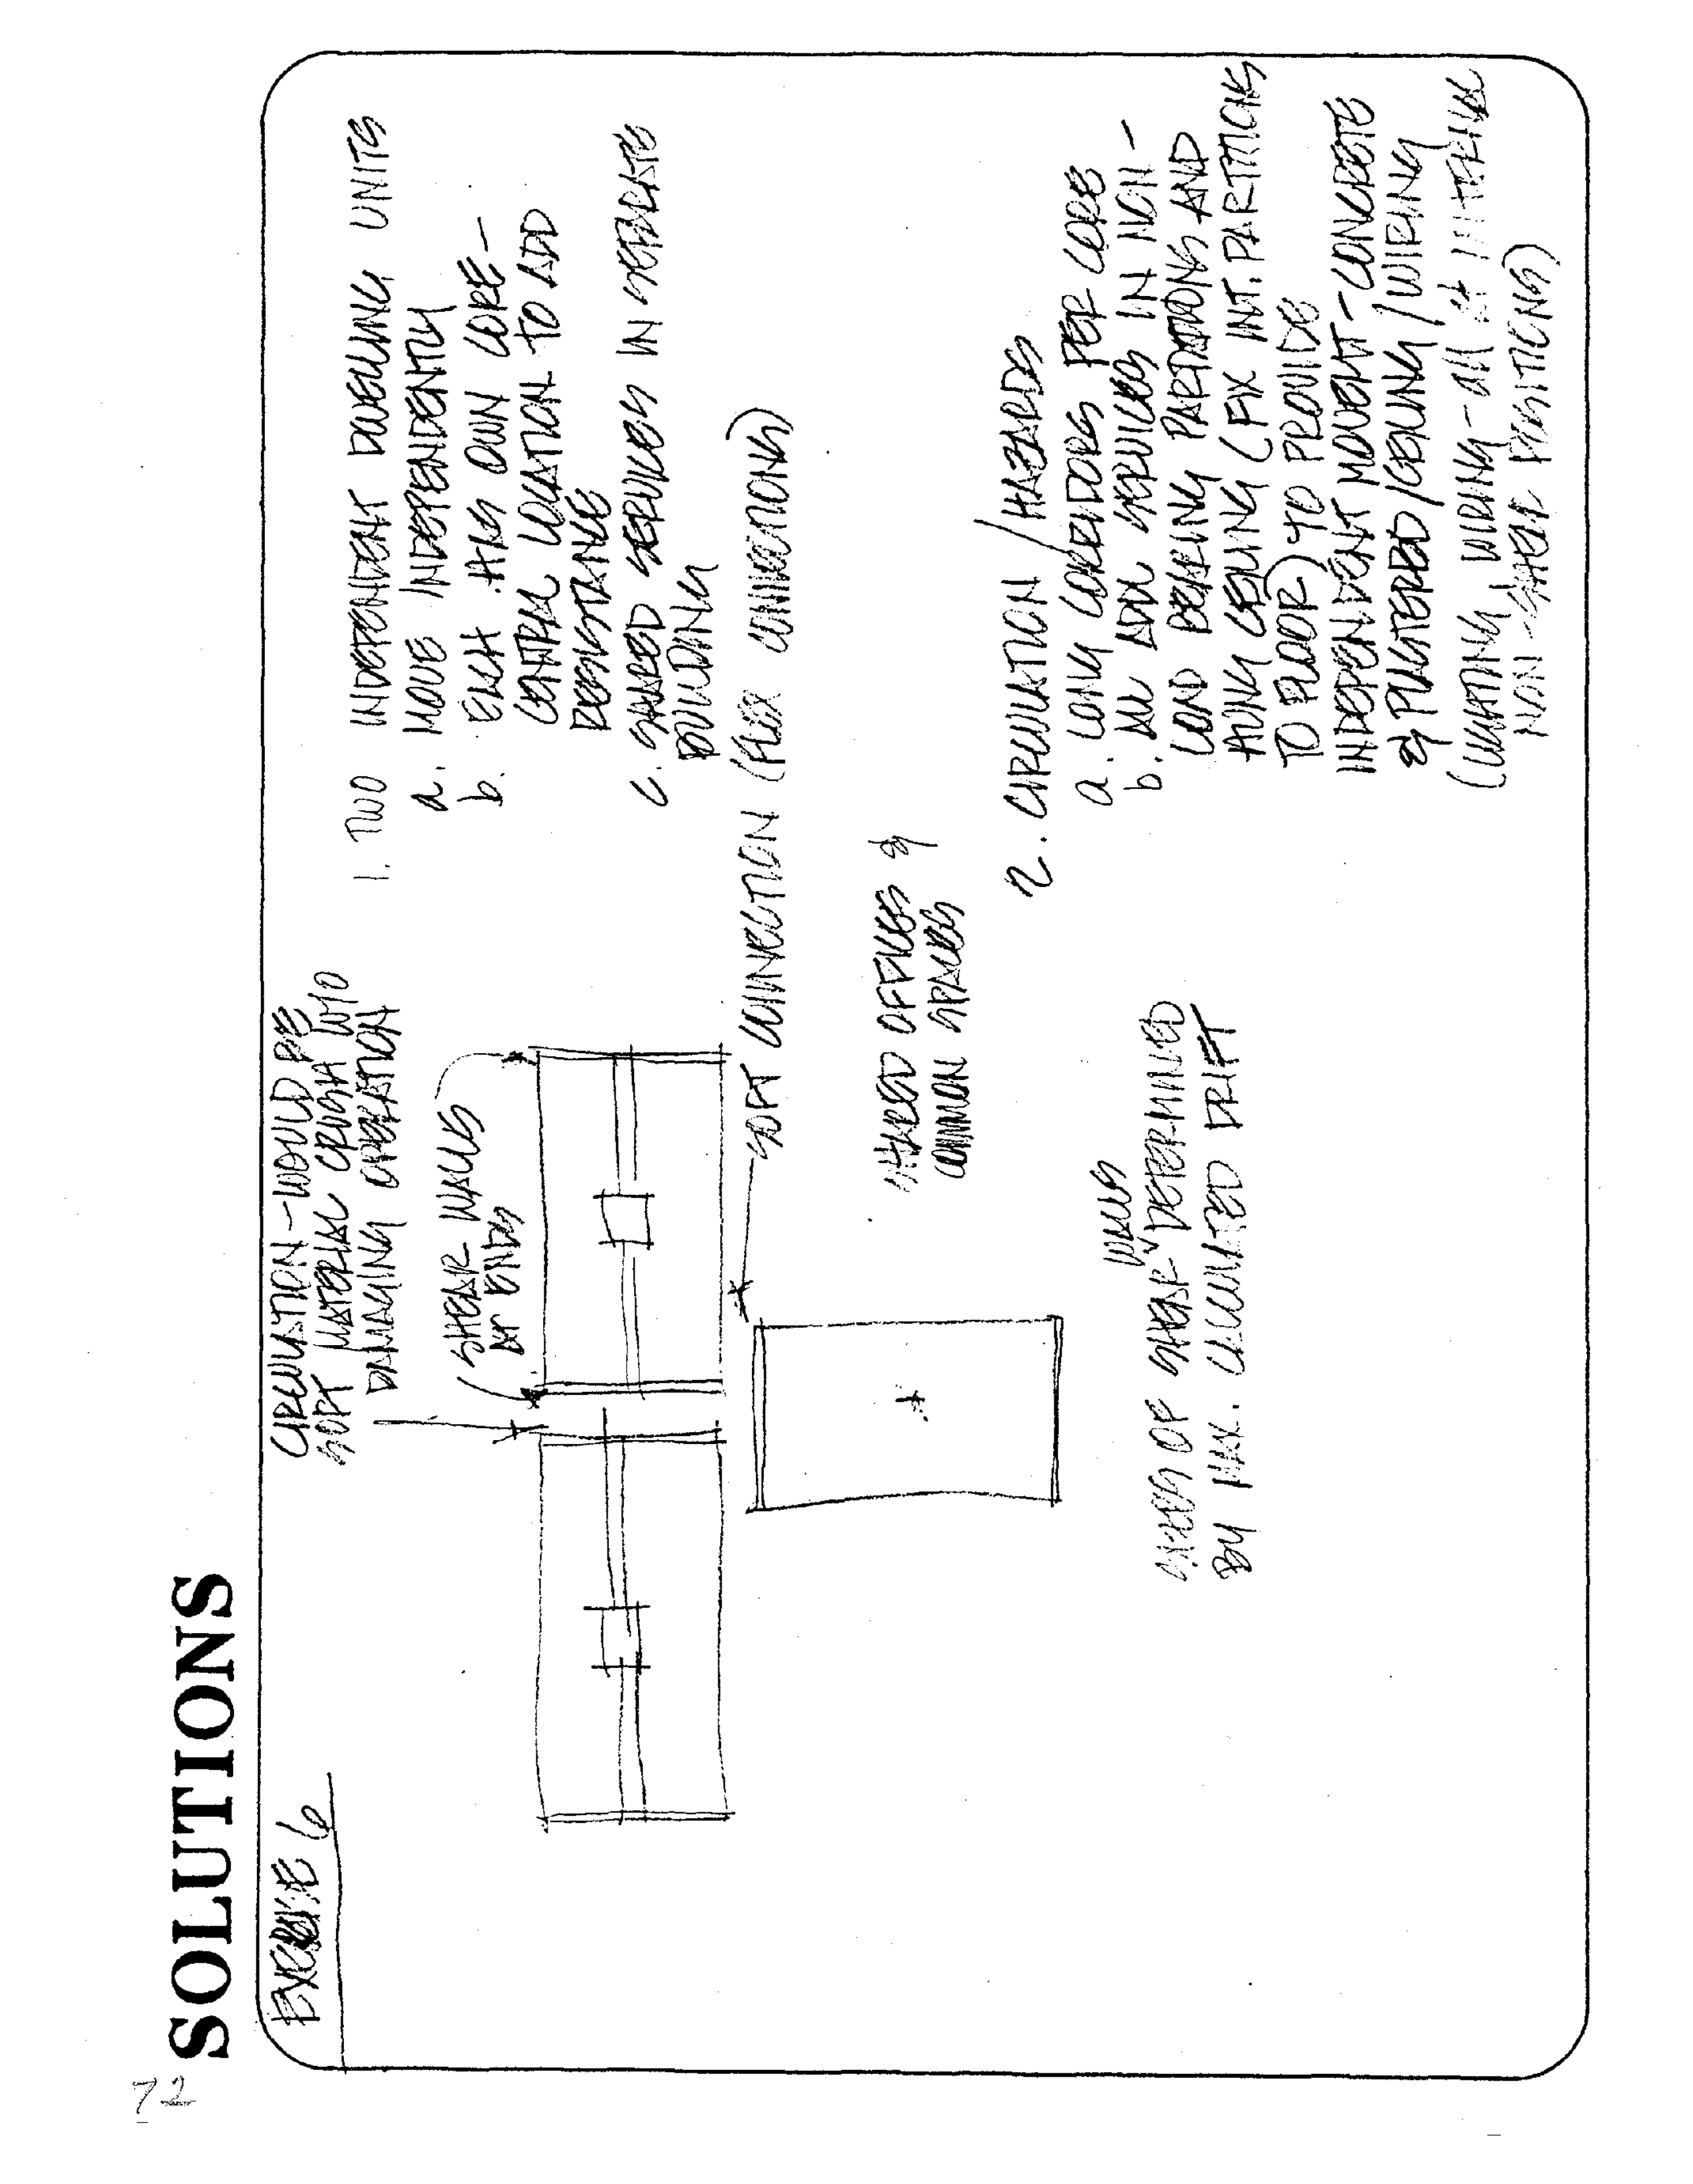 72
SOLUTIONS
EXERCISE 6
CIRCULATION - WOULD BE
SOFT MATERIAL CRUSH W/O
DAMAGING OPERATION
SHEAR WALLS
AT ENDS
SOFT CONNECTION (FLEX CONNECTIONS)
SHARED OFFICES &
COMMON SPACES
WALLS
SIZES OF SHEAR ˅ DETERMINED
BY MAX. CALCULATED DRIFT
1. TWO INDEPENDENT DWELLING UNITS
a. MOVE INDEPENDENTLY
b. EACH HAS OWN CORE -
CENTRAL LOCATION TO ADD
RESISTANCE
c. SHARED SERVICES IN SEPARATE
BUILDING
2. CIRCULATION / HAZARDS
a. LONG CORRIDORS PER CORE
b. ALL ADM SERVICES IN NON-
LOAD BEARING PARTITIONS AND
ALONG CEILING (FIX INT. PARTITIONS
TO FLOOR) TO PROVIDE
INDEPENDENT MOVEMT - CONCRETE
& PLASTERED / CEILING / WIRING
(LOCATING WIRING - all at INTERNAL
NON-SHEAR POSITIONS)